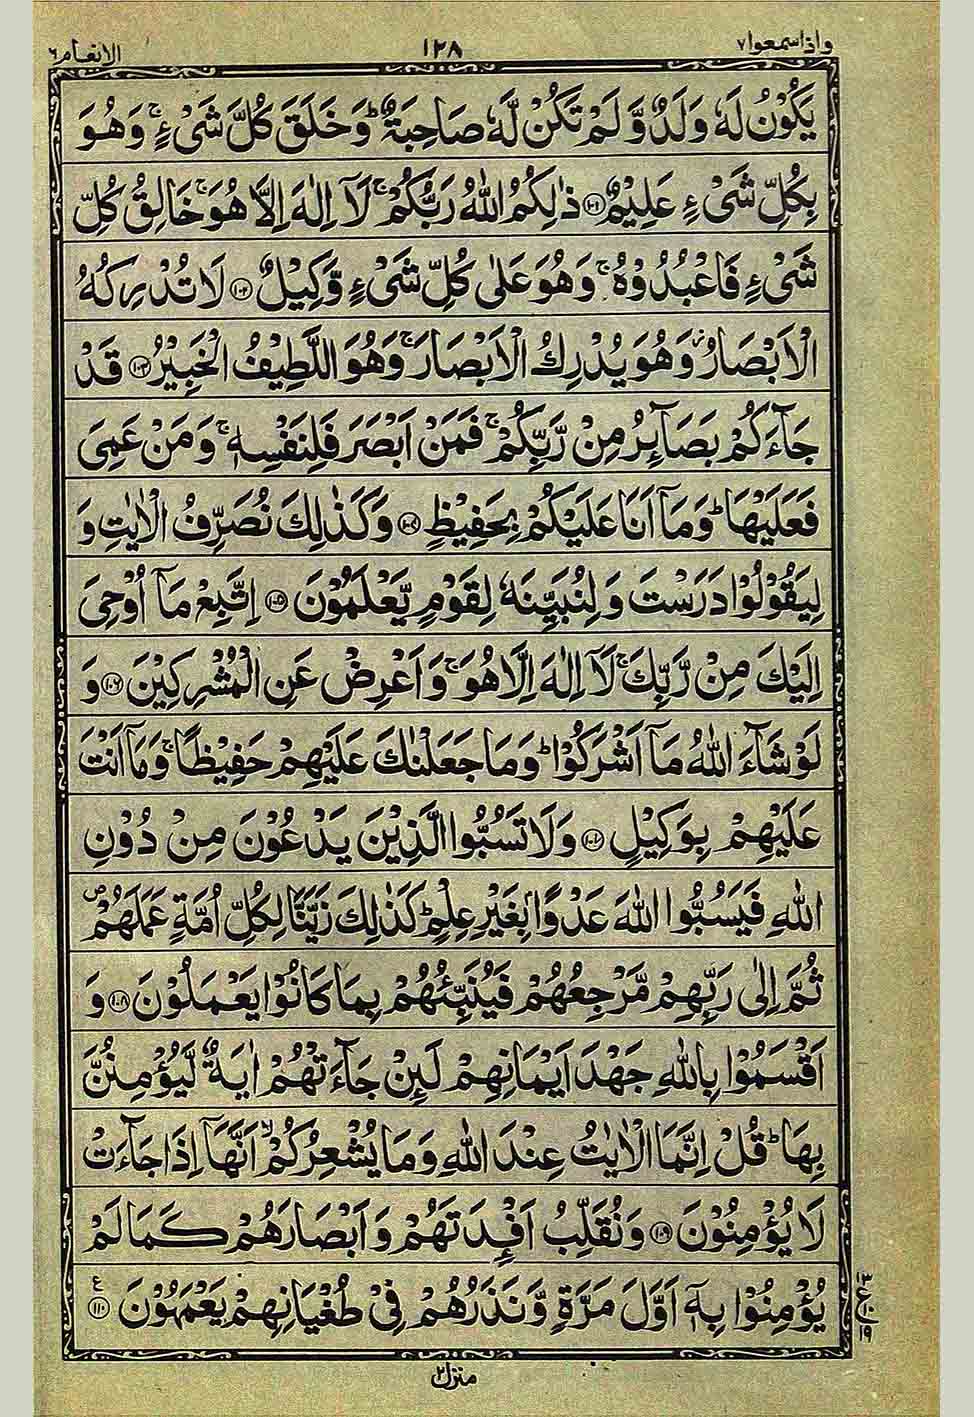 واذا سمعوا ٧
١٢٨
الانعام ٦
يَكُوْنُ لَهٗ وَلَدٌ وَّ لَمْ تَكُنْ لَّهٗ صَاحِبَةٌ ؕ وَ خَلَقَ كُلَّ شَیْءٍ ۚ وَ هُوَ
بِكُلِّ شَیْءٍ عَلِيْمٌ ﴿۱۰۱﴾ ذٰلِكُمُ اللّٰهُ رَبُّكُمْ ۚ لَاۤ اِلٰهَ اِلَّا هُوَ ۚ خَالِقُ كُلِّ
شَیْءٍ فَاعْبُدُوْهُ ۚ وَ هُوَ عَلٰی كُلِّ شَیْءٍ وَّكِيْلٌ ﴿۱۰۲﴾ لَا تُدْرِكُهُ
الْاَبْصَارُ ؗ وَ هُوَ يُدْرِكُ الْاَبْصَارَ ۚ وَ هُوَ اللَّطِيْفُ الْخَبِيْرُ ﴿۱۰۳﴾ قَدْ
جَآءَكُمْ بَصَآىِٕرُ مِنْ رَّبِّكُمْ ۚ فَمَنْ اَبْصَرَ فَلِنَفْسِهٖ ۚ وَ مَنْ عَمِیَ
فَعَلَيْهَا ؕ وَ مَاۤ اَنَا عَلَيْكُمْ بِحَفِيْظٍ ﴿۱۰۴﴾ وَ كَذٰلِكَ نُصَرِّفُ الْاٰيٰتِ وَ
لِيَقُوْلُوْا دَرَسْتَ وَ لِنُبَيِّنَهٗ لِقَوْمٍ يَّعْلَمُوْنَ ﴿۱۰۵﴾ اِتَّبِعْ مَاۤ اُوْحِیَ
اِلَيْكَ مِنْ رَّبِّكَ ۚ لَاۤ اِلٰهَ اِلَّا هُوَ ۚ وَ اَعْرِضْ عَنِ الْمُشْرِكِيْنَ ﴿۱۰۶﴾ وَ
لَوْ شَآءَ اللّٰهُ مَاۤ اَشْرَكُوْا ؕ وَ مَا جَعَلْنٰكَ عَلَيْهِمْ حَفِيْظًا ۚ وَ مَاۤ اَنْتَ
عَلَيْهِمْ بِوَكِيْلٍ ﴿۱۰۷﴾ وَ لَا تَسُبُّوا الَّذِيْنَ يَدْعُوْنَ مِنْ دُوْنِ
اللّٰهِ فَيَسُبُّوا اللّٰهَ عَدْوًۢا بِغَيْرِ عِلْمٍ ؕ كَذٰلِكَ زَيَّنَّا لِكُلِّ اُمَّةٍ عَمَلَهُمْ ۪
ثُمَّ اِلٰی رَبِّهِمْ مَّرْجِعُهُمْ فَيُنَبِّئُهُمْ بِمَا كَانُوْا يَعْمَلُوْنَ ﴿۱۰۸﴾ وَ
اَقْسَمُوْا بِاللّٰهِ جَهْدَ اَيْمَانِهِمْ لَىِٕنْ جَآءَتْهُمْ اٰيَةٌ لَّيُؤْمِنُنَّ
بِهَا ؕ قُلْ اِنَّمَا الْاٰيٰتُ عِنْدَ اللّٰهِ وَ مَا يُشْعِرُكُمْ ۙ اَنَّهَاۤ اِذَا جَآءَتْ
لَا يُؤْمِنُوْنَ ﴿۱۰۹﴾ وَ نُقَلِّبُ اَفْـِٕدَتَهُمْ وَ اَبْصَارَهُمْ كَمَا لَمْ
يُؤْمِنُوْا بِهٖۤ اَوَّلَ مَرَّةٍ وَّ نَذَرُهُمْ فِیْ طُغْيَانِهِمْ يَعْمَهُوْنَ ﴿۱۱۰﴾ ع
منزل ٢